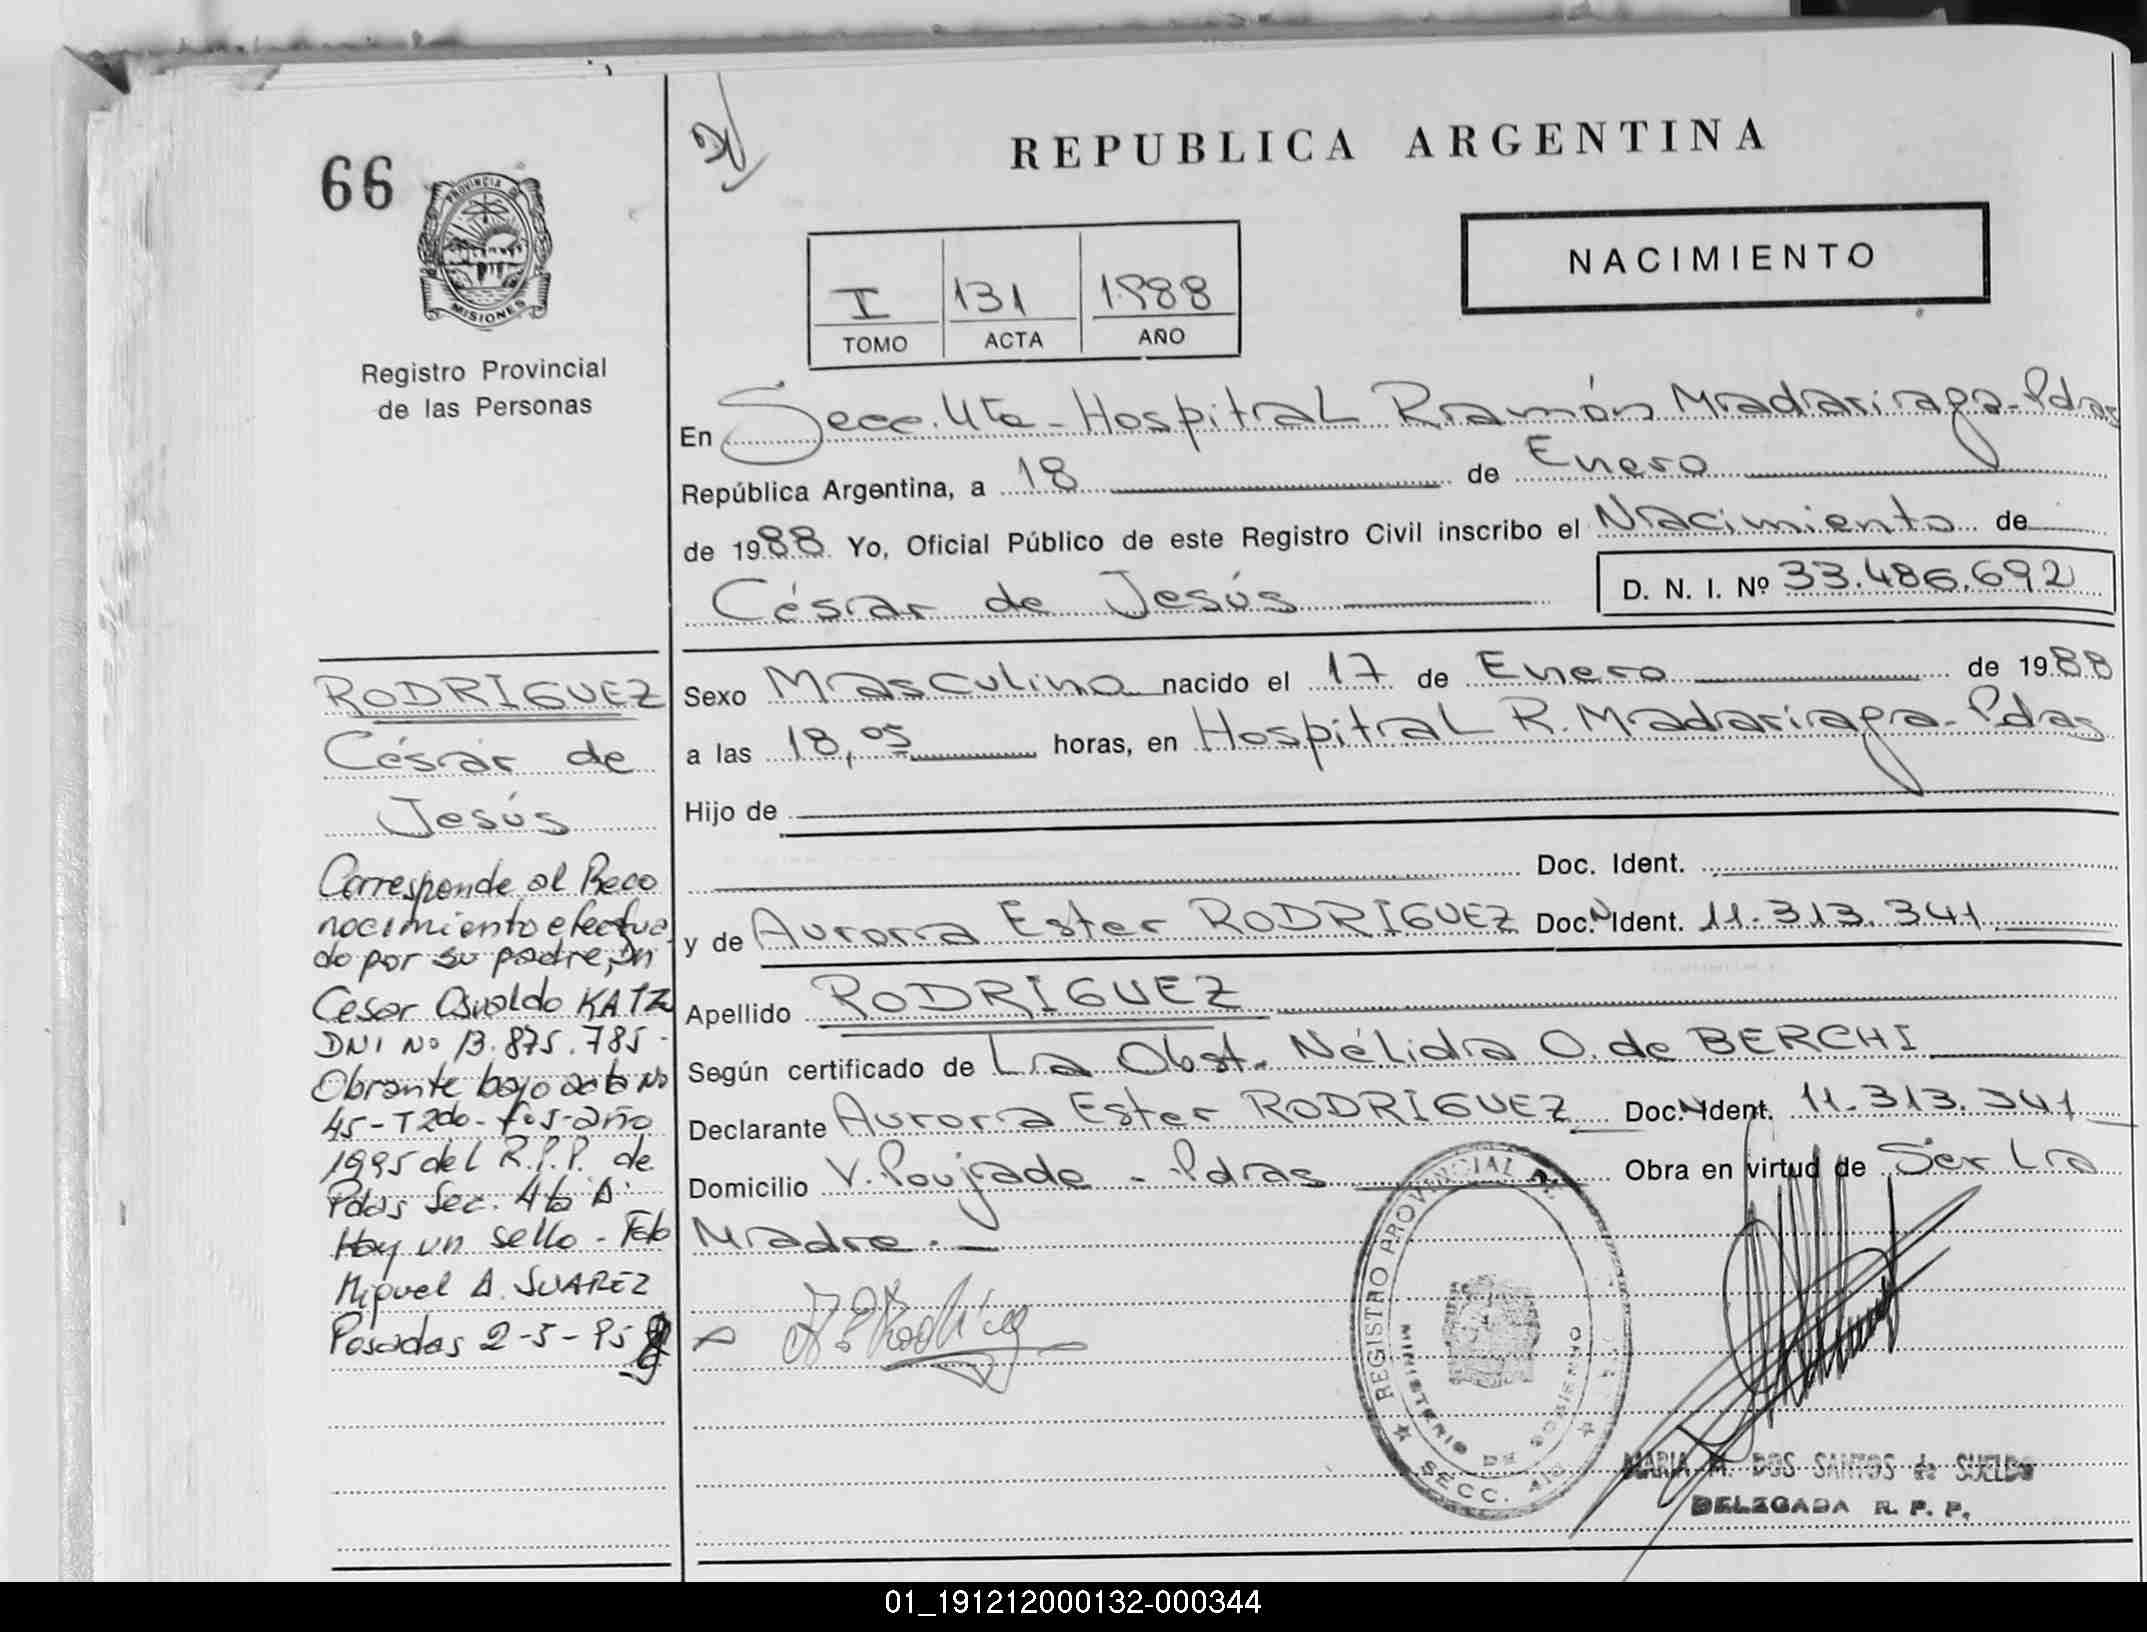 66
PROVINCIA DE
MISIONES
Registro Provincial
de las Personas
REPUBLICA ARGENTINA
NACIMIENTO
I 131 1988
TOMO ACTA AÑO
En Secc. 4ta - Hospital Ramón Madariaga - Pdas
República Argentina, a 18 de Enero
de 1988 Yo, Oficial Público de este Registro Civil inscribo el Nacimiento de
César de Jesús D. N. I. Nº 33.486.692
Sexo Masculino nacido el 17 de Enero de 1988
a las 18,05 horas, en Hospital R. Madariaga - Pdas
Hijo de
Doc. Ident.
y de Aurora Ester RODRIGUEZ Doc. N Ident. 11.313.341
Apellido RODRIGUEZ
Según certificado de La Obst. Nélida O. de BERCHI
Declarante Aurora Ester RODRIGUEZ Doc. N Ident. 11.313.341
Domicilio V. Poujade - Pdas Obra en virtud de Ser La
Madre. -
RODRIGUEZ
César de
Jesús
Corresponde al Reco
nocimiento efectua
do por su padre, Dn
Cesar Osvaldo KATZ
DNI Nº 13.875.785 -
Obrante bajo acta Nº
45 - T 2do - fº 5 - año
1995 del R.P.P. de
Pdas Sec. 4ta A
Hay un sello - Fdo
Miguel A. SUAREZ
Posadas 2-5-95
REGISTRO PROVINCIAL DE
MINISTERIO DE GOBIERNO
SECC. 4ta
MARIA M. DOS SANTOS de SUELDO
DELEGADA R. P. P.
01_191212000132-000344